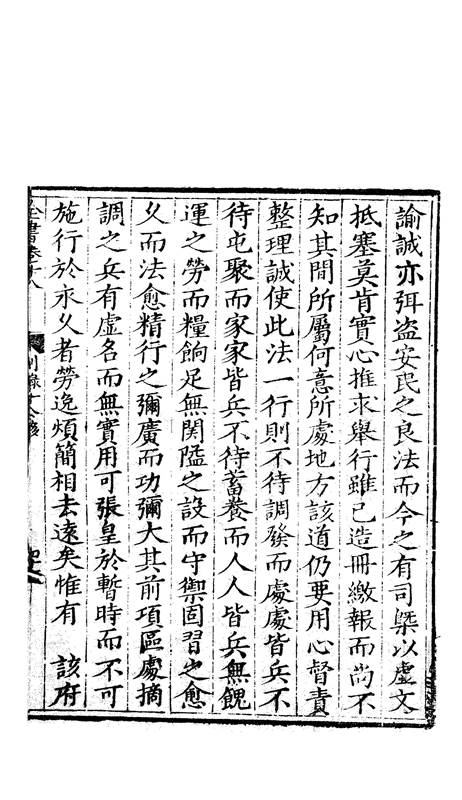 諭誠亦弭盗安民之良法而今之有司槩以虚文
抵塞莫肯實心推求舉行雖已造冊繳報而尚不
知其間所屬何意所處地方該道仍要用心督責
整理誠使此法一行則不待調發而處處皆兵不
待屯聚而家家皆兵不待蓄養而人人皆兵無餽
運之勞而糧餉足無関隘之設而守禦固習之愈
乆而法愈精行之彌廣而功彌大其前項區處摘
調之兵有虚名而無實用可張皇於暫時而不可
施行於永乆者勞逸煩簡相去遠矣惟有 該府
全書卷十八